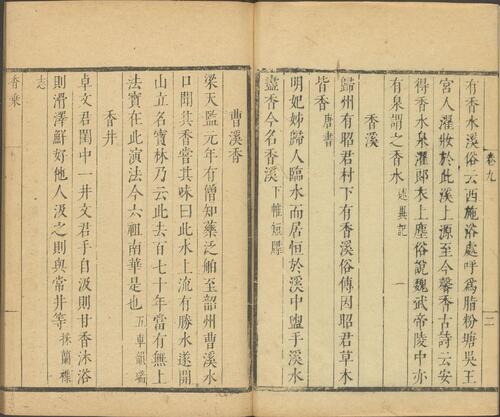 卷九
有香水溪俗云西施浴處呼爲脂粉塘吳王
宮人濯妝於此溪上源至今馨香古詩云安
得香水泉濯郎衣上塵俗說魏武帝陵中亦
有泉謂之香水 述異記
香溪
歸州有昭君村下有香溪俗傳因昭君草木
皆香 唐書
明妃姊歸人臨水而居恒於溪中盥手溪水
盡香今名香溪 下帷短牒
曹溪香
梁天監元年有僧知藥泛舶至韶州曹溪水
口聞其香嘗其味曰此水上流有勝水遂開
山立名寶林乃云此去百七十年當有無上
法寶在此演法今六祖南華是也 五車韻瑞
香井
卓文君閨中一井文君手自汲則甘香沐浴
則滑澤鮮好他人汲之則與常井等 採蘭襍
志
香乘